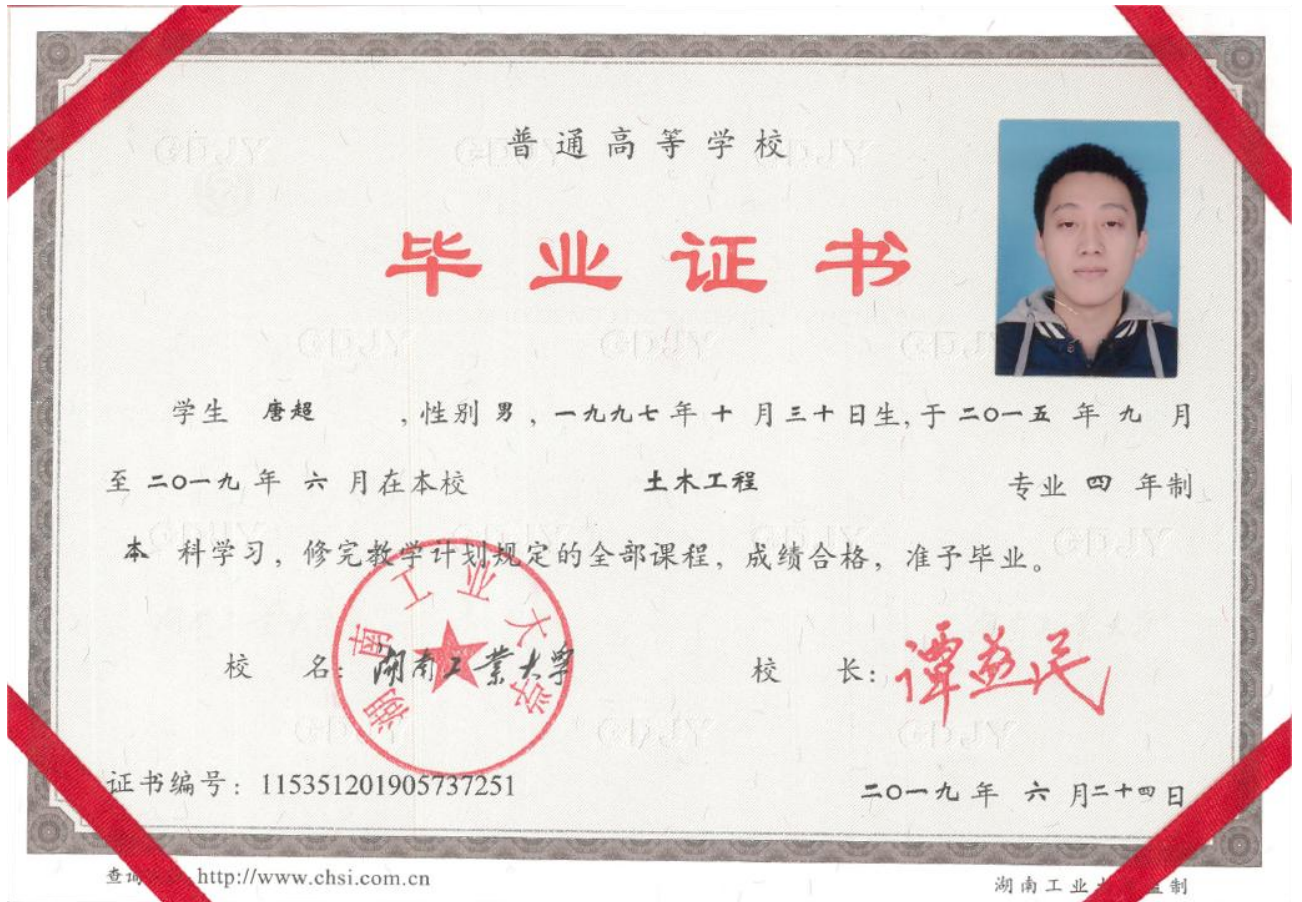 普通高等学校
毕业证书
学生 唐超 ,性别 男 , 一九九七 年 十 月 三十 日生, 于 二〇一五 年 九 月
至 二〇一九 年 六 月在本校 土木工程 专业 四 年制
本 科学习, 修完教学计划规定的全部课程, 成绩合格, 准予毕业。
湖南工业大学
校 名: 湖南工業大學
校 长: 谭益民
证书编号: 115351201905737251
二〇一九 年 六 月二十四日
查询 http://www.chsi.com.cn
湖南工业 监制